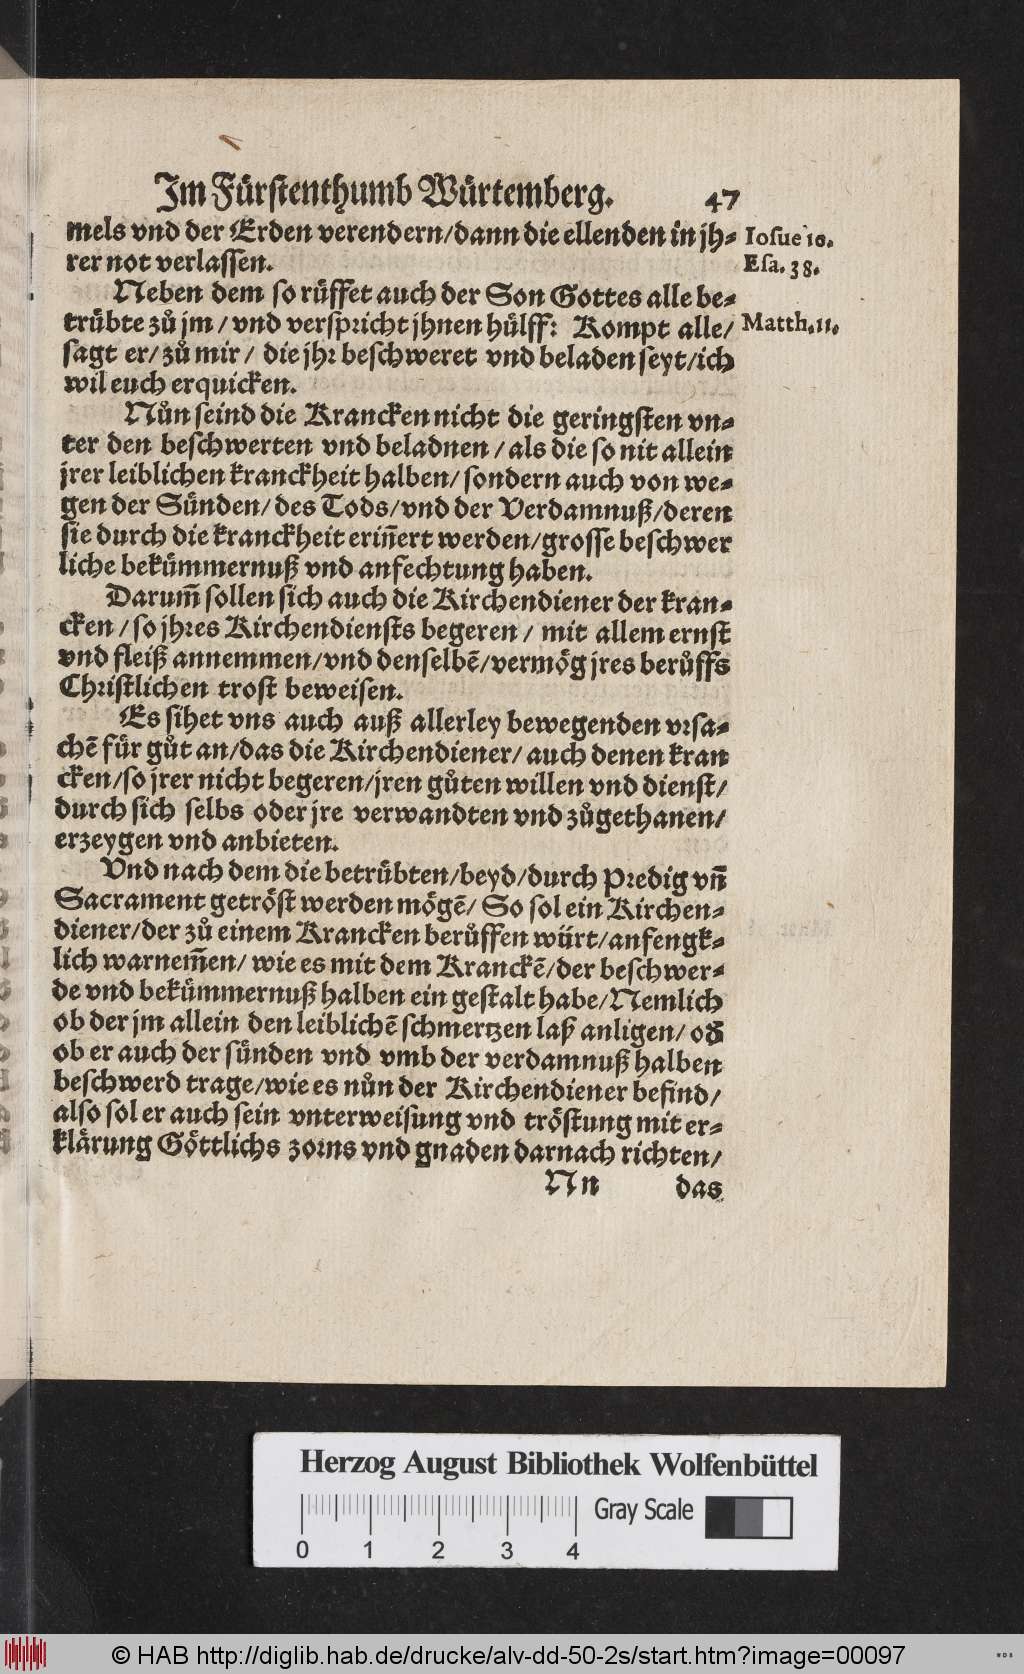 Im Fürstenthumb Würtemberg. 47
mels vnd der Erden verendern/dann die ellenden in jh⸗
rer not verlassen.
Iosue 10.
Esa. 38.
Neben dem so rüffet auch der Son Gottes alle be⸗
trübte zů jm / vnd verspricht jhnen hülff: Kompt alle/
Matth. 11.
sagt er/ zů mir / die jhr beschweret vnd beladen seyt/ich
wil euch erquicken.
Nůn seind die Krancken nicht die geringsten vn⸗
ter den beschwerten vnd beladnen / als die so nit allein
jrer leiblichen kranckheit halben/ sondern auch von we⸗
gen der Sünden/ des Tods/vnd der Verdamnuß/deren
sie durch die kranckheit erin̄ert werden/grosse beschwer
liche bekümmernuß vnd anfechtung haben.
Darum̄ sollen sich auch die Kirchendiener der kran⸗
cken / so jhres Kirchendiensts begeren / mit allem ernst
vnd fleiß annemmen/vnd denselbē/vermög jres berůffs
Christlichen trost beweisen.
Es sihet vns auch auß allerley bewegenden vrsa⸗
chē für gůt an/das die Kirchendiener/ auch denen kran
cken/so jrer nicht begeren/jren gůten willen vnd dienst/
durch sich selbs oder jre verwandten vnd zůgethanen/
erzeygen vnd anbieten.
Vnd nach dem die betrübten/beyd/durch Predig vn̄
Sacrament getröst werden mögē/ So sol ein Kirchen⸗
diener/der zů einem Krancken berůffen würt/anfengk⸗
lich warnem̄en/ wie es mit dem Kranckē/der beschwer⸗
de vnd bekümmernuß halben ein gestalt habe/Nemlich
ob der jm allein den leiblichē schmertzen laß anligen/ od̄
ob er auch der sünden vnd vmb der verdamnuß halben
beschwerd trage/wie es nůn der Kirchendiener befind/
also sol er auch sein vnterweisung vnd tröstung mit er⸗
klärung Göttlichs zorns vnd gnaden darnach richten/
Nn das
Herzog August Bibliothek Wolfenbüttel
Gray Scale
0 1 2 3 4
© HAB http://diglib.hab.de/drucke/alv-dd-50-2s/start.htm?image=00097